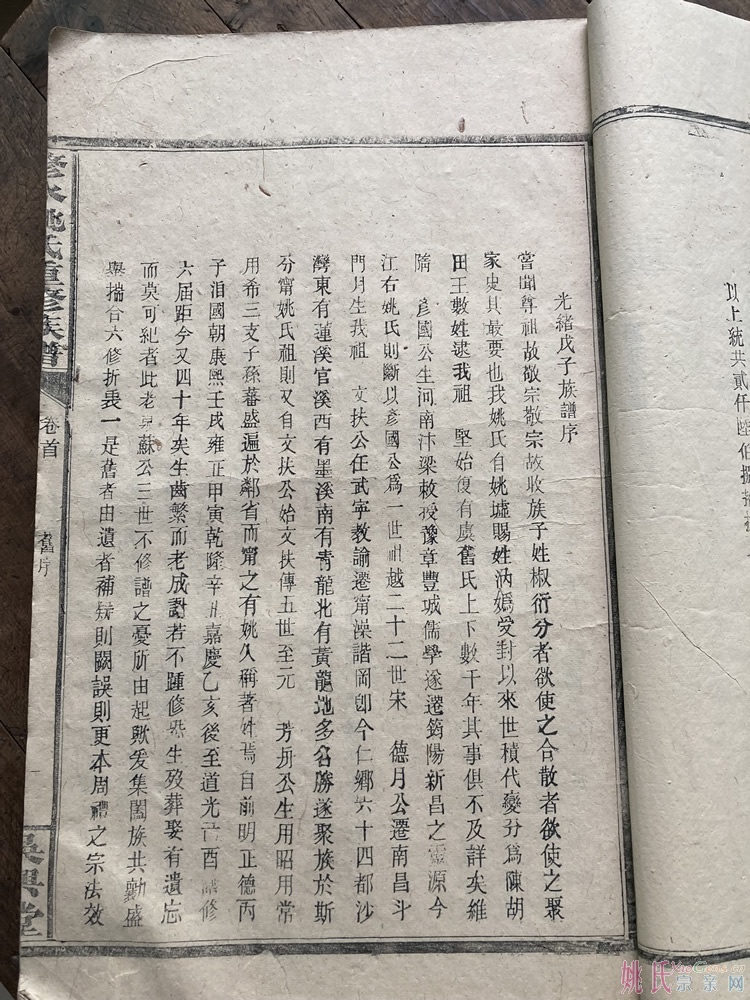 光緒戊子族譜序
嘗聞尊祖故敬宗敬宗故收族子姓椒衍分者欲使之合散者欲使之聚
家史具最要也我姚氏自姚墟賜姓溈嬀受封以來世積代變分爲陳胡
田王數姓逮我祖 堅始復有虞舊氏上下數千年其事俱不及詳矣維
隋 彦國公生河南汴梁敕授豫章豐城儒學遂遷筠陽新昌之靈源今
江右姚氏則斷以彦國公爲一世祖越二十二世宋 德月公遷南昌斗
門月生我祖 文扶公任武寧教諭遷甯澡諧岡卽今仁鄉六十四都沙
灣東有蓮溪官溪西有墨溪南有青龍北有黃龍地多名勝遂聚族於斯
分甯姚氏祖則又自文扶公始文扶傳五世至元 芳舟公生用昭用常
用希三支子孫蕃盛遍於鄰省而甯之有姚久稱著姓焉自前明正德丙
子洎國朝康熙壬戌雍正甲寅乾隆辛丑嘉慶乙亥後至道光酉譜修
六届距今又四十年矣生齒繁而老成凋若不踵修恐生歿葬娶有遺忘
而莫可紀者此老泉蘇公三世不修譜之憂所由起歟爰集闔族共勷盛
舉揣合六修折衷一是舊者由遺者補疑則闕誤則更本周禮之宗法效
修水姚氏重修族譜
卷首
舊序
吳興堂
以上統共貳仟陸伯捌拾
姚氏宗亲网